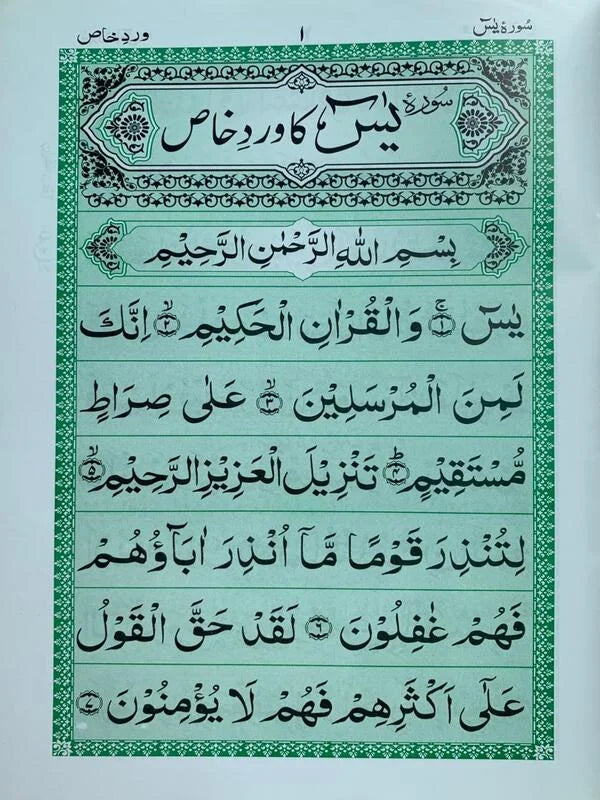 سُورۂ یٰسٓ
۱
وردِ خاص
سُورۂ یٰسٓ کا وردِ خاص
بِسْمِ اللّٰهِ الرَّحْمٰنِ الرَّحِیْمِ
یٰسٓ ﴿۱﴾ۚ وَالْقُرْاٰنِ الْحَكِیْمِ ﴿۲﴾ۙ اِنَّكَ
لَمِنَ الْمُرْسَلِیْنَ ﴿۳﴾ۙ عَلٰى صِرَاطٍ
مُّسْتَقِیْمٍ ﴿۴﴾ؕ تَنْزِیْلَ الْعَزِیْزِ الرَّحِیْمِ ﴿۵﴾ۙ
لِتُنْذِرَ قَوْمًا مَّاۤ اُنْذِرَ اٰبَآؤُهُمْ
فَهُمْ غٰفِلُوْنَ ﴿۶﴾ لَقَدْ حَقَّ الْقَوْلُ
عَلٰۤى اَكْثَرِهِمْ فَهُمْ لَا یُؤْمِنُوْنَ ﴿۷﴾